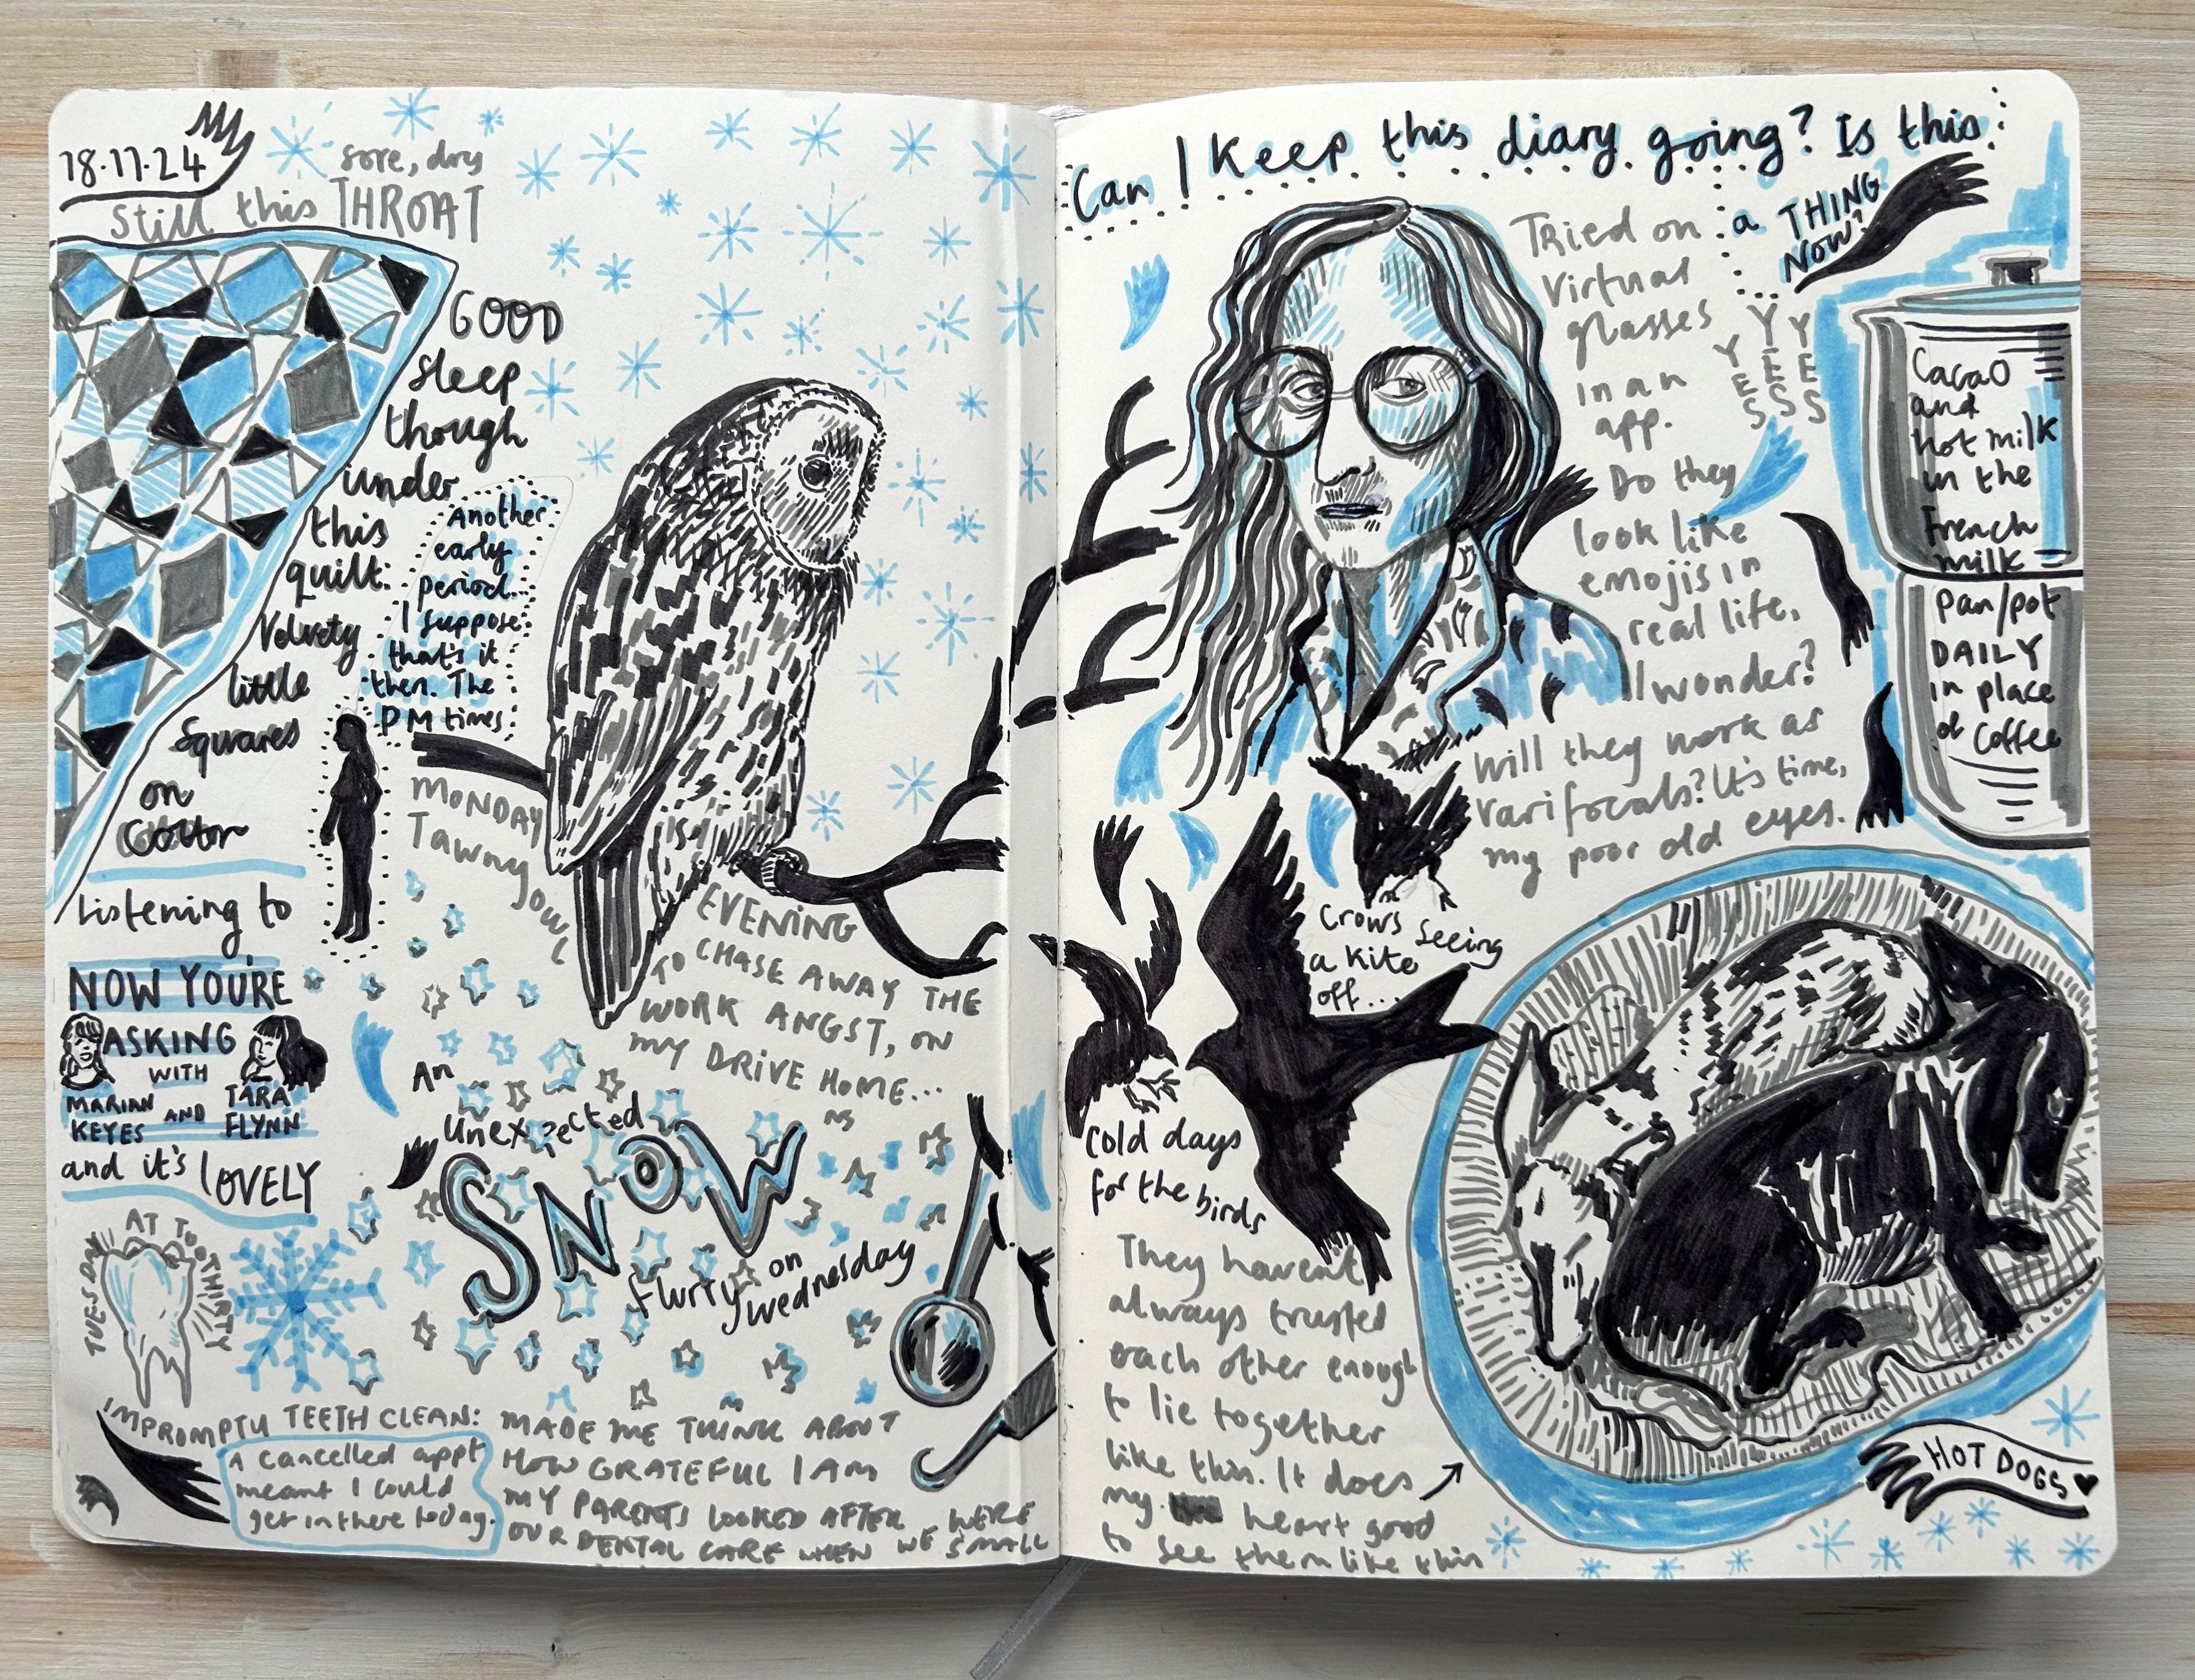 18.11.24
sore, dry
still this THROAT
GOOD
sleep
though
under
this
quilt:
Velvety
little
squares
on
Cotton
Another
early
period...
I suppose
that's it
then. The
PM times
Listening to
NOW YOU'RE
ASKING
WITH
MARIAN
KEYES
AND
TARA
FLYNN
and it's LOVELY
MONDAY
Tawny owl
EVENING
TO CHASE AWAY THE
WORK ANGST, ON
MY DRIVE HOME...
An
unexpected
SNOW
flurry on
Wednesday
TUESDAY AT TOOTHIRTY
IMPROMPTU TEETH CLEAN:
A cancelled appt
meant I could
get in there today.
MADE ME THINK ABOUT
HOW GRATEFUL I AM
MY PARENTS LOOKED AFTER
OUR DENTAL CARE WHEN WE WERE
SMALL
Can I keep this diary going? Is this
a THING
NOW?
YES
YES
YES
Tried on
virtual
glasses
in an
app.
Do they
look like
emojis in
real life,
I wonder?
Will they work as
varifocals? It's time,
my poor old eyes.
Cacao
and
hot milk
in the
French
milk
pan/pot
DAILY
in place
of Coffee
Crows seeing
a kite
off...
Cold days
for the birds
They haven't
always trusted
each other enough
to lie together
like this. It does
my heart good
to see them like this
HOT DOGS